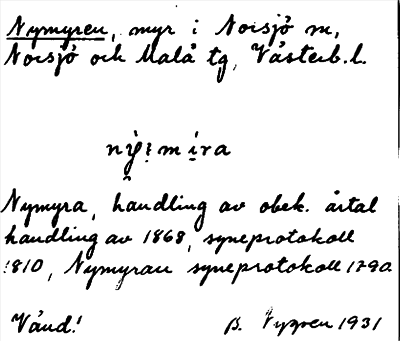 Nymyren, myr i Norsjö sn,
Norsjö och Malå tg, Västerb.l.
Nymyra, handling av obek. årtal
handling av 1868, syneprotokoll
1810, Nymyran syneprotokoll 1790.
Vänd!
B. 1931